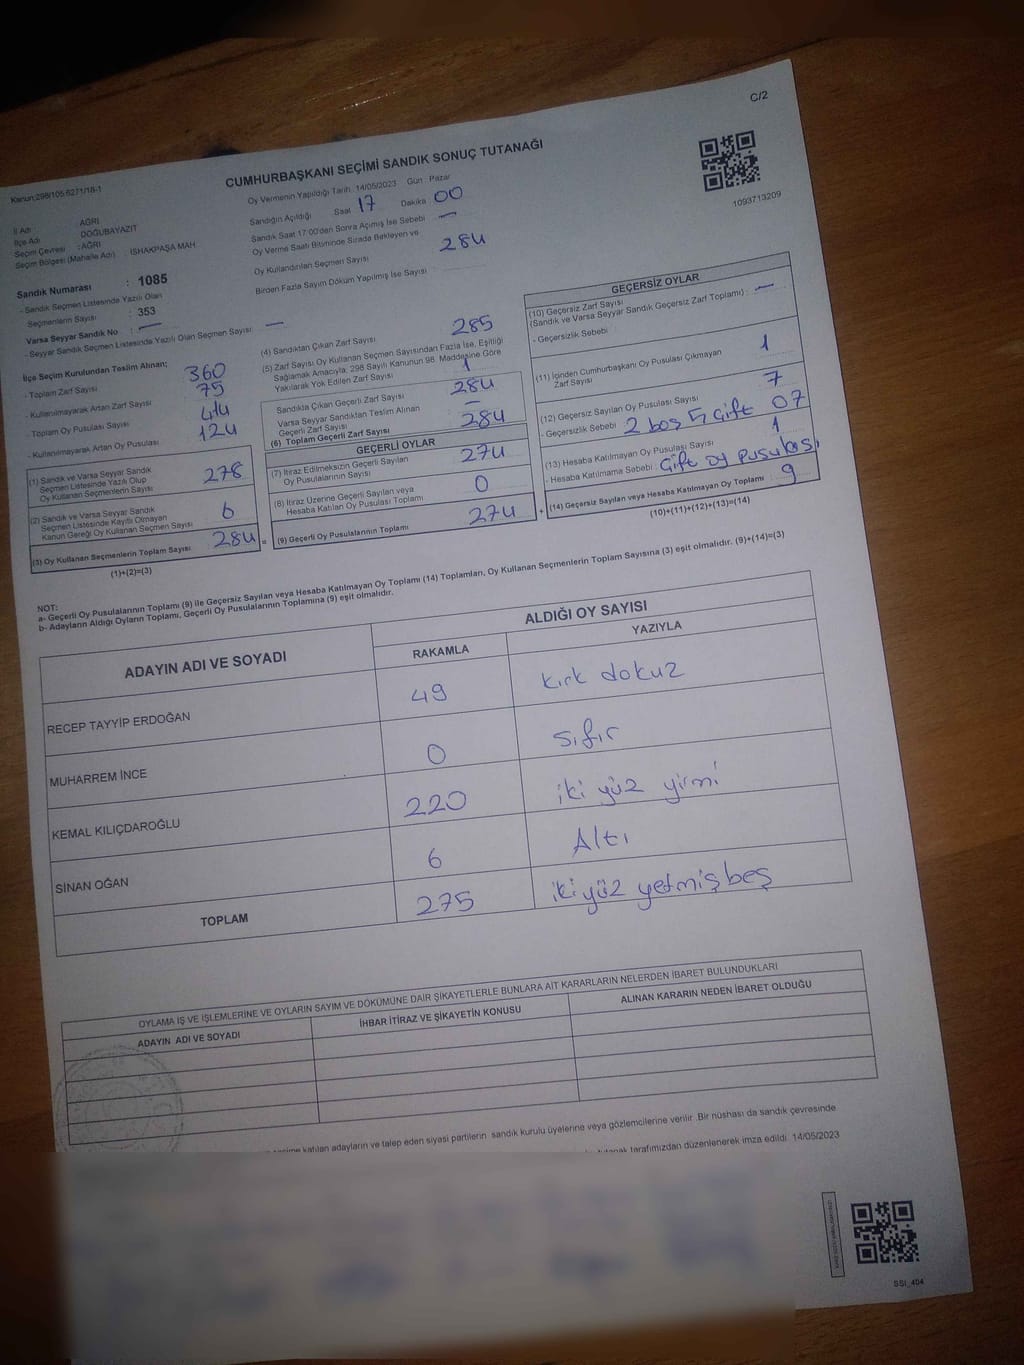 C/2
Kanun:298/105 6271/18-1
CUMHURBAŞKANI SEÇİMİ SANDIK SONUÇ TUTANAĞI
1093713209
İl Adı : AĞRI
İlçe Adı : DOĞUBAYAZIT
Seçim Çevresi : AĞRI
Seçim Bölgesi (Mahalle Adı) : İSHAKPAŞA MAH
Sandık Numarası : 1085
- Sandık Seçmen Listesinde Yazılı Olan
Seçmenlerin Sayısı : 353
Varsa Seyyar Sandık No : —
- Seyyar Sandık Seçmen Listesinde Yazılı Olan Seçmen Sayısı : —
Oy Vermenin Yapıldığı Tarih: 14/05/2023 Gün : Pazar
Sandığın Açıldığı Saat 17 Dakika 00
Sandık Saat 17:00'den Sonra Açımış İse Sebebi —
Oy Verme Saati Bitiminde Sırada Bekleyen ve
Oy Kullandırılan Seçmen Sayısı 284
Birden Fazla Sayım Döküm Yapılmış İse Sayısı :
İlçe Seçim Kurulundan Teslim Alınan;
- Toplam Zarf Sayısı 360
- Kullanılmayarak Artan Zarf Sayısı 75
- Toplam Oy Pusulası Sayısı 414
- Kullanılmayarak Artan Oy Pusulası 124
(1) Sandık ve Varsa Seyyar Sandık
Seçmen Listesinde Yazılı Olup
Oy Kullanan Seçmenlerin Sayısı 278
(2) Sandık ve Varsa Seyyar Sandık
Seçmen Listesinde Kayıtlı Olmayan
Kanun Gereği Oy Kullanan Seçmen Sayısı 6
(3) Oy Kullanan Seçmenlerin Toplam Sayısı 284 =
(1)+(2)=(3)
(4) Sandıktan Çıkan Zarf Sayısı 285
(5) Zarf Sayısı Oy Kullanan Seçmen Sayısından Fazla İse, Eşitliği
Sağlamak Amacıyla, 298 Sayılı Kanunun 98. Maddesine Göre
Yakılarak Yok Edilen Zarf Sayısı 1
Sandıkta Çıkan Geçerli Zarf Sayısı 284
Varsa Seyyar Sandıktan Teslim Alınan
Geçerli Zarf Sayısı —
(6) Toplam Geçerli Zarf Sayısı 284
GEÇERLİ OYLAR
(7) İtiraz Edilmeksizin Geçerli Sayılan
Oy Pusulalarının Sayısı 274
(8) İtiraz Üzerine Geçerli Sayılan veya
Hesaba Katılan Oy Pusulası Toplamı 0
(9) Geçerli Oy Pusulalarının Toplamı 274 +
GEÇERSİZ OYLAR
(10) Geçersiz Zarf Sayısı
(Sandık ve Varsa Seyyar Sandık Geçersiz Zarf Toplamı) : —
- Geçersizlik Sebebi :
(11) İçinden Cumhurbaşkanı Oy Pusulası Çıkmayan
Zarf Sayısı 1
(12) Geçersiz Sayılan Oy Pusulası Sayısı 7
- Geçersizlik Sebebi : 2 boş 5 Çift 07
(13) Hesaba Katılmayan Oy Pusulası Sayısı 1
- Hesaba Katılmama Sebebi : Çift oy pusulası
(14) Geçersiz Sayılan veya Hesaba Katılmayan Oy Toplamı 9
(10)+(11)+(12)+(13)=(14)
NOT:
a- Geçerli Oy Pusulalarının Toplamı (9) ile Geçersiz Sayılan veya Hesaba Katılmayan Oy Toplamı (14) Toplamları, Oy Kullanan Seçmenlerin Toplam Sayısına (3) eşit olmalıdır. (9)+(14)=(3)
b- Adayların Aldığı Oyların Toplamı, Geçerli Oy Pusulalarının Toplamına (9) eşit olmalıdır.
ADAYIN ADI VE SOYADI
ALDIĞI OY SAYISI
RAKAMLA YAZIYLA
RECEP TAYYİP ERDOĞAN 49 kırk dokuz
MUHARREM İNCE 0 sıfır
KEMAL KILIÇDAROĞLU 220 iki yüz yirmi
SİNAN OĞAN 6 Altı
TOPLAM 275 iki yüz yetmiş beş
OYLAMA İŞ VE İŞLEMLERİNE VE OYLARIN SAYIM VE DÖKÜMÜNE DAİR ŞİKAYETLERLE BUNLARA AİT KARARLARIN NELERDEN İBARET BULUNDUKLARI
ADAYIN ADI VE SOYADI İHBAR İTİRAZ VE ŞİKAYETİN KONUSU ALINAN KARARIN NEDEN İBARET OLDUĞU
katılan adayların ve talep eden siyasi partilerin sandık kurulu üyelerine veya gözlemcilerine verilir. Bir nüshası da sandık çevresinde
tarafımızdan düzenlenerek imza edildi. 14/05/2023
SSI_404